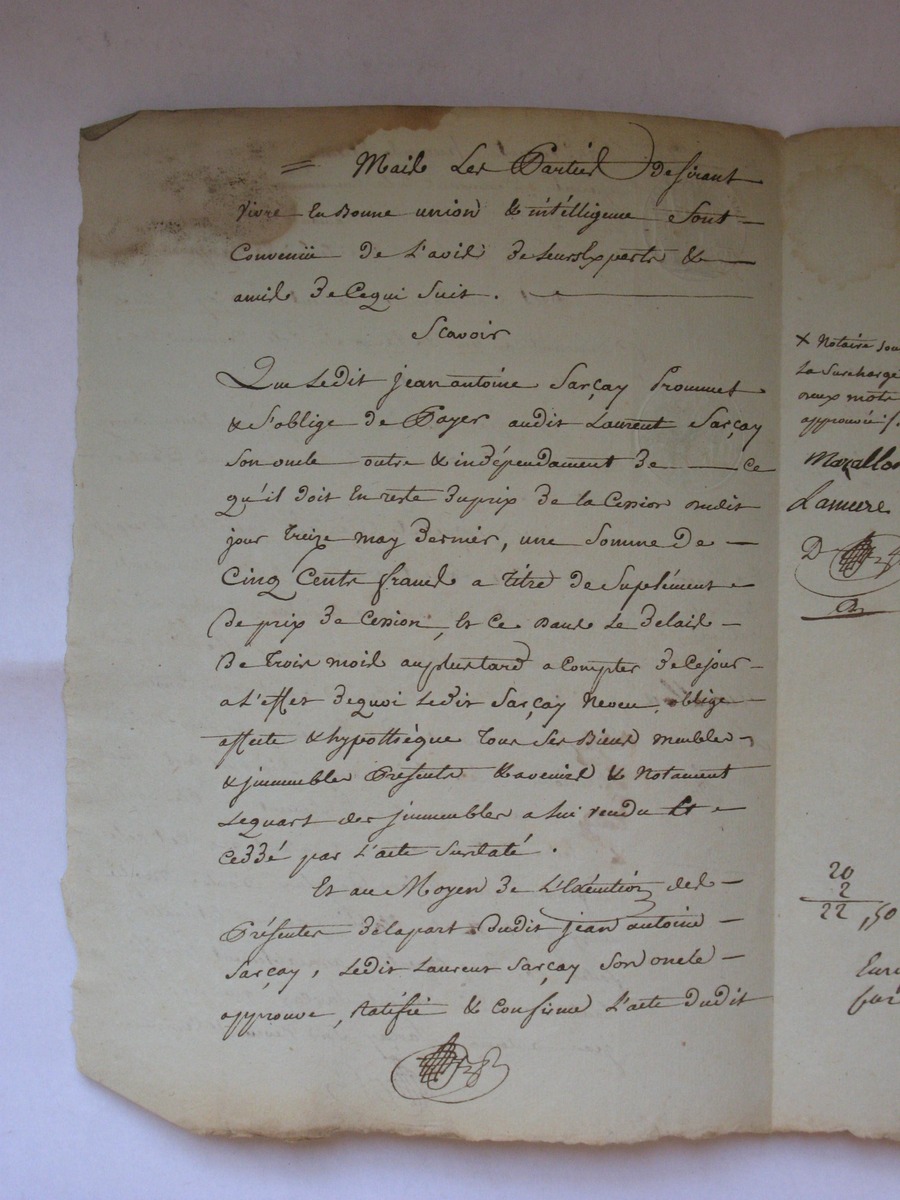 = Mais Les Parties desirant
vivre En Bonne union & intélligence Sont
Convenüe de L'avis de Leurs Experts &
amis de Ce qui Suit.
Scavoir
Que Ledit jean antoine Sarçay Prommet
& S'oblige de Payer audit Laurent Sarçay
Son oncle outre & indépendament de ce
qu'il doit En reste du prix de la Cession audit
jour treize may dernier, une Somme de
Cinq Cents francs a titre de Suplément
de prix de Cession, Et Ce dans Le délais
de trois mois au plus tard a Compter de Ce jour
a L'effet de quoi Ledit Sarçay neveu, oblige
affecte & hypothèque tous Ses Biens meubles
& jmmeubles Présents & avenirs & Notament
Le quart des jmmeubles a lui vendu Et
Ceddé par L'acte Surdaté.
Et au Moyen de L'Exécution des
Présentes de la part dudit jean antoine
Sarçay, Ledit Laurent Sarçay Son oncle
approuve, Ratifie & Confirme L'acte dudit
X Notaire Sou
La Surcharge
deux mots
approuvée
Lamure
20
2
22,50